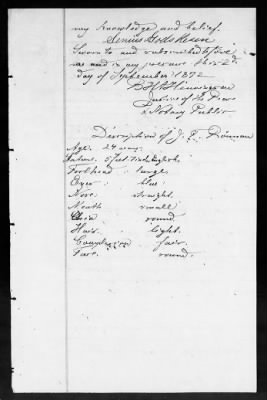 my knowledge and belief.
Sworn to and subscribed before
me and in my presence this 2nd
day of September 1872
Justice of the Peace
Notary Public
Description of J. F.
Age. 24 years
Stature. 5 feet
Forehead large.
Eyes blue
Nose straight.
Mouth small
Chin round.
Hair light.
Complexion fair.
Face round.